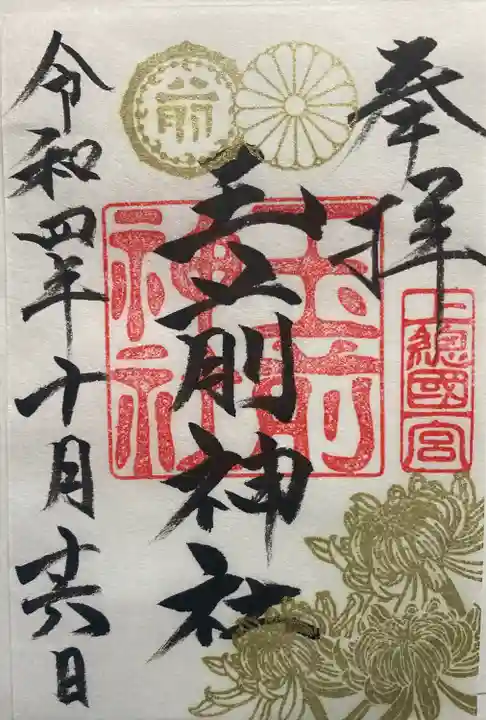 奉拝
上總國一宮
玉前神社
玉前神社
令和四年十月廿六日